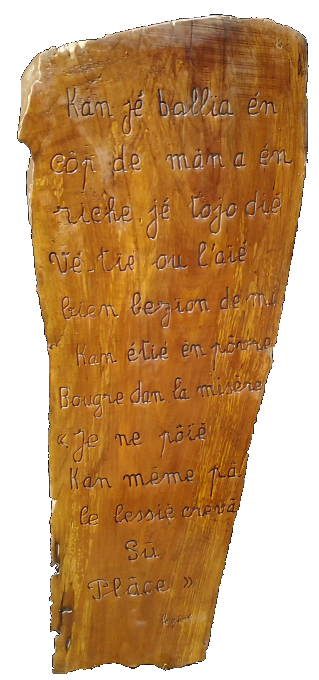 Kan jé ballia én
côp de män a én
riche jé tojo diê
Vé-tie ou l'aïé
bien bezion de mi
Kan étié én pôvre
Bougre dan la misére
« Je ne pöïê
Kan même pâ
le lessiê crevâ
Sü
Pläce »